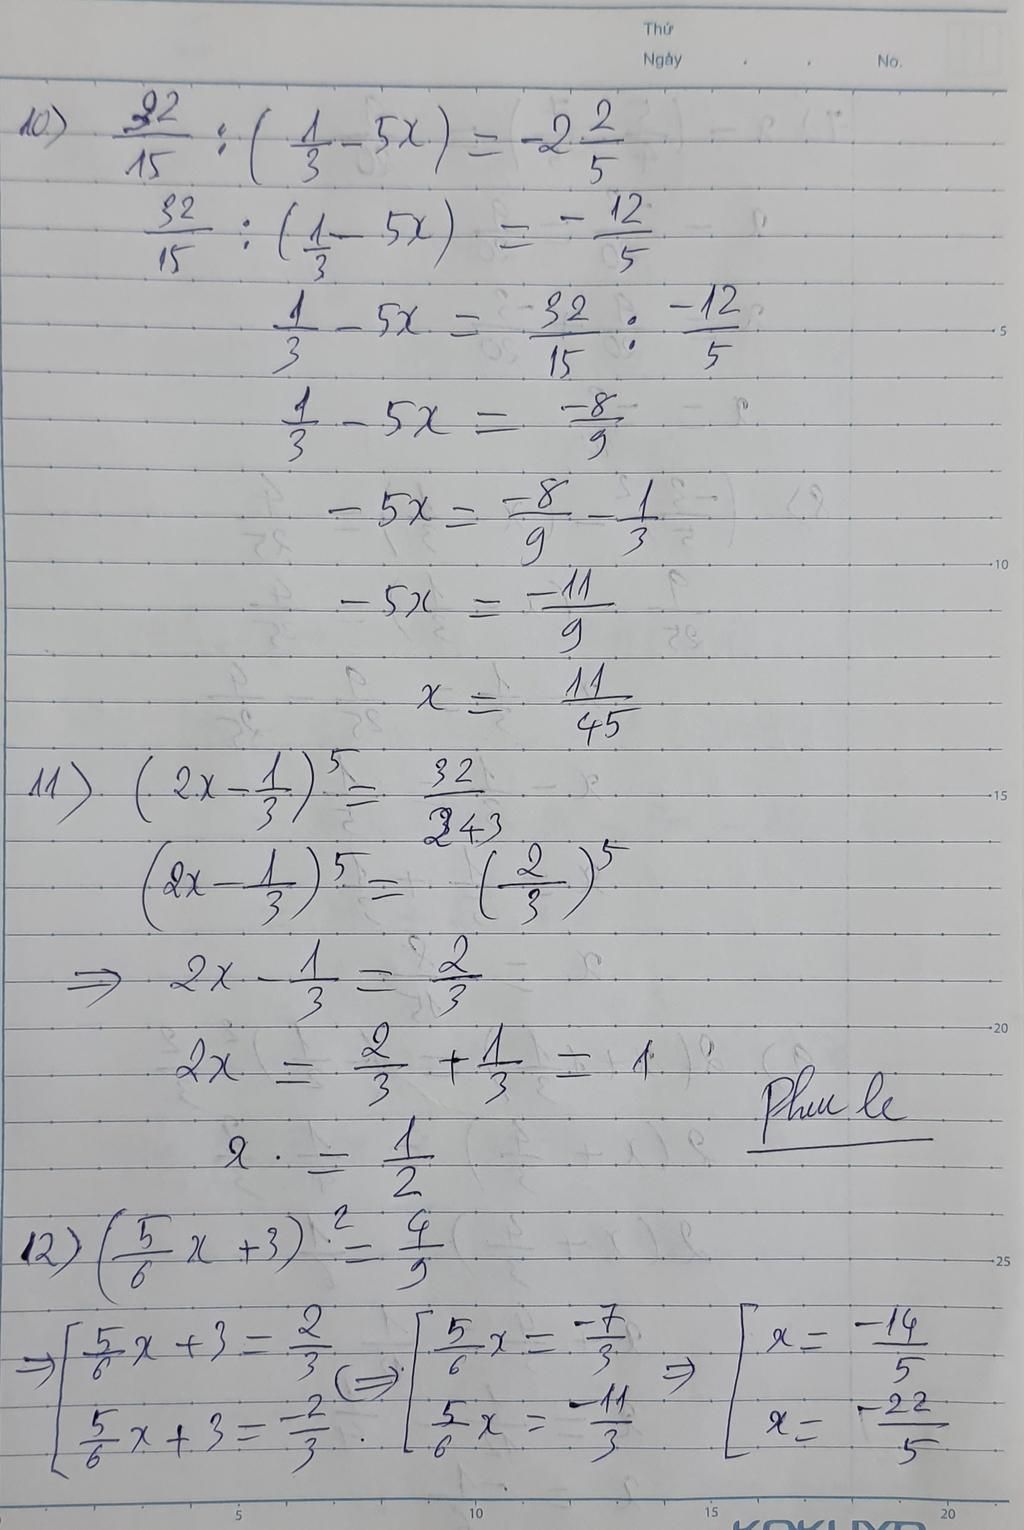 Thứ
Ngày . . No.
10) 32/15 : (1/3 - 5x) = -2 2/5
32/15 : (1/3 - 5x) = -12/5
1/3 - 5x = 32/15 : -12/5
1/3 - 5x = -8/9
- 5x = -8/9 - 1/3
- 5x = -11/9
x = 11/45
11) (2x - 1/3)^5 = 32/243
(2x - 1/3)^5 = (2/3)^5
⇒ 2x - 1/3 = 2/3
2x = 2/3 + 1/3 = 1
Phuc le
x = 1/2
12) (5/6 x + 3)^2 = 4/9
⇒ [ 5/6 x + 3 = 2/3 (⇒) [ 5/6 x = -7/3 ⇒ [ x = -14/5
5/6 x + 3 = -2/3 . 5/6 x = -11/3 x = -22/5
5 10 15 20
5
10
15
20
25
KOKUYO